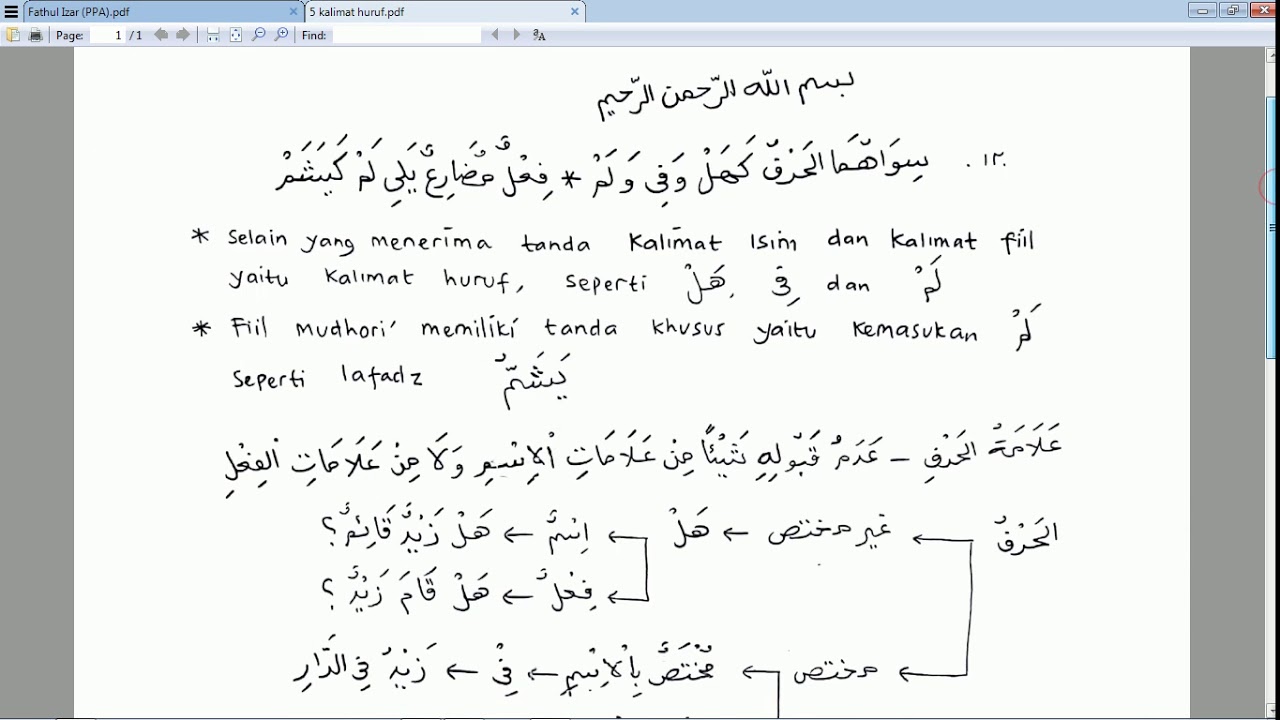 Fathul Izar (PPA).pdf × 5 kalimat huruf.pdf ×
Page: 1 / 1 Find:
بسم الله الرّحمن الرّحيم
١٢. سِوَاهُمَا الحَرْفُ كَهَلْ وَفِى وَلَمْ * فِعْلٌ مُضَارِعٌ يَلِي لَمْ كَيَشَمْ
* Selain yang menerima tanda kalimat Isim dan kalimat fiil
yaitu kalimat huruf, seperti هَلْ, فِى dan لَمْ
* Fiil mudhori' memiliki tanda khusus yaitu kemasukan لَمْ
seperti lafadz يَشَمُّ
عَلَامَةُ الحَرْفِ – عَدَمُ قَبُوْلِهِ شَيْئًا مِنْ عَلَامَاتِ الْاِسْمِ وَلَا مِنْ عَلَامَاتِ الْفِعْلِ
الحَرْفُ ← غير مختص ← هَلْ ← اِسْمٌ ← هَلْ زَيْدٌ قَائِمٌ ؟
← فِعْلٌ ← هَلْ قَامَ زَيْدٌ ؟
← مختص ← مُخْتَصٌّ بِالْاِسْمِ ← فِيْ ← زَيْدٌ فِي الدَّارِ